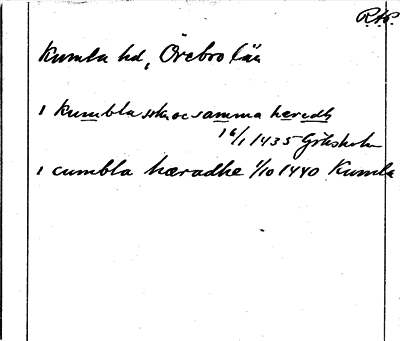 R.A.P.
Kumla hd, Örebro län
1 kumbla sokn oc samma heredh
16/1 1435 Göksholm
1 cumbla hæradhe 1/10 1440 Kumla